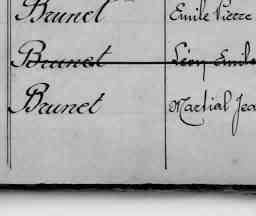 Brunet Emile Pierre
Brunet Léon Emile
Brunet Martial Jea